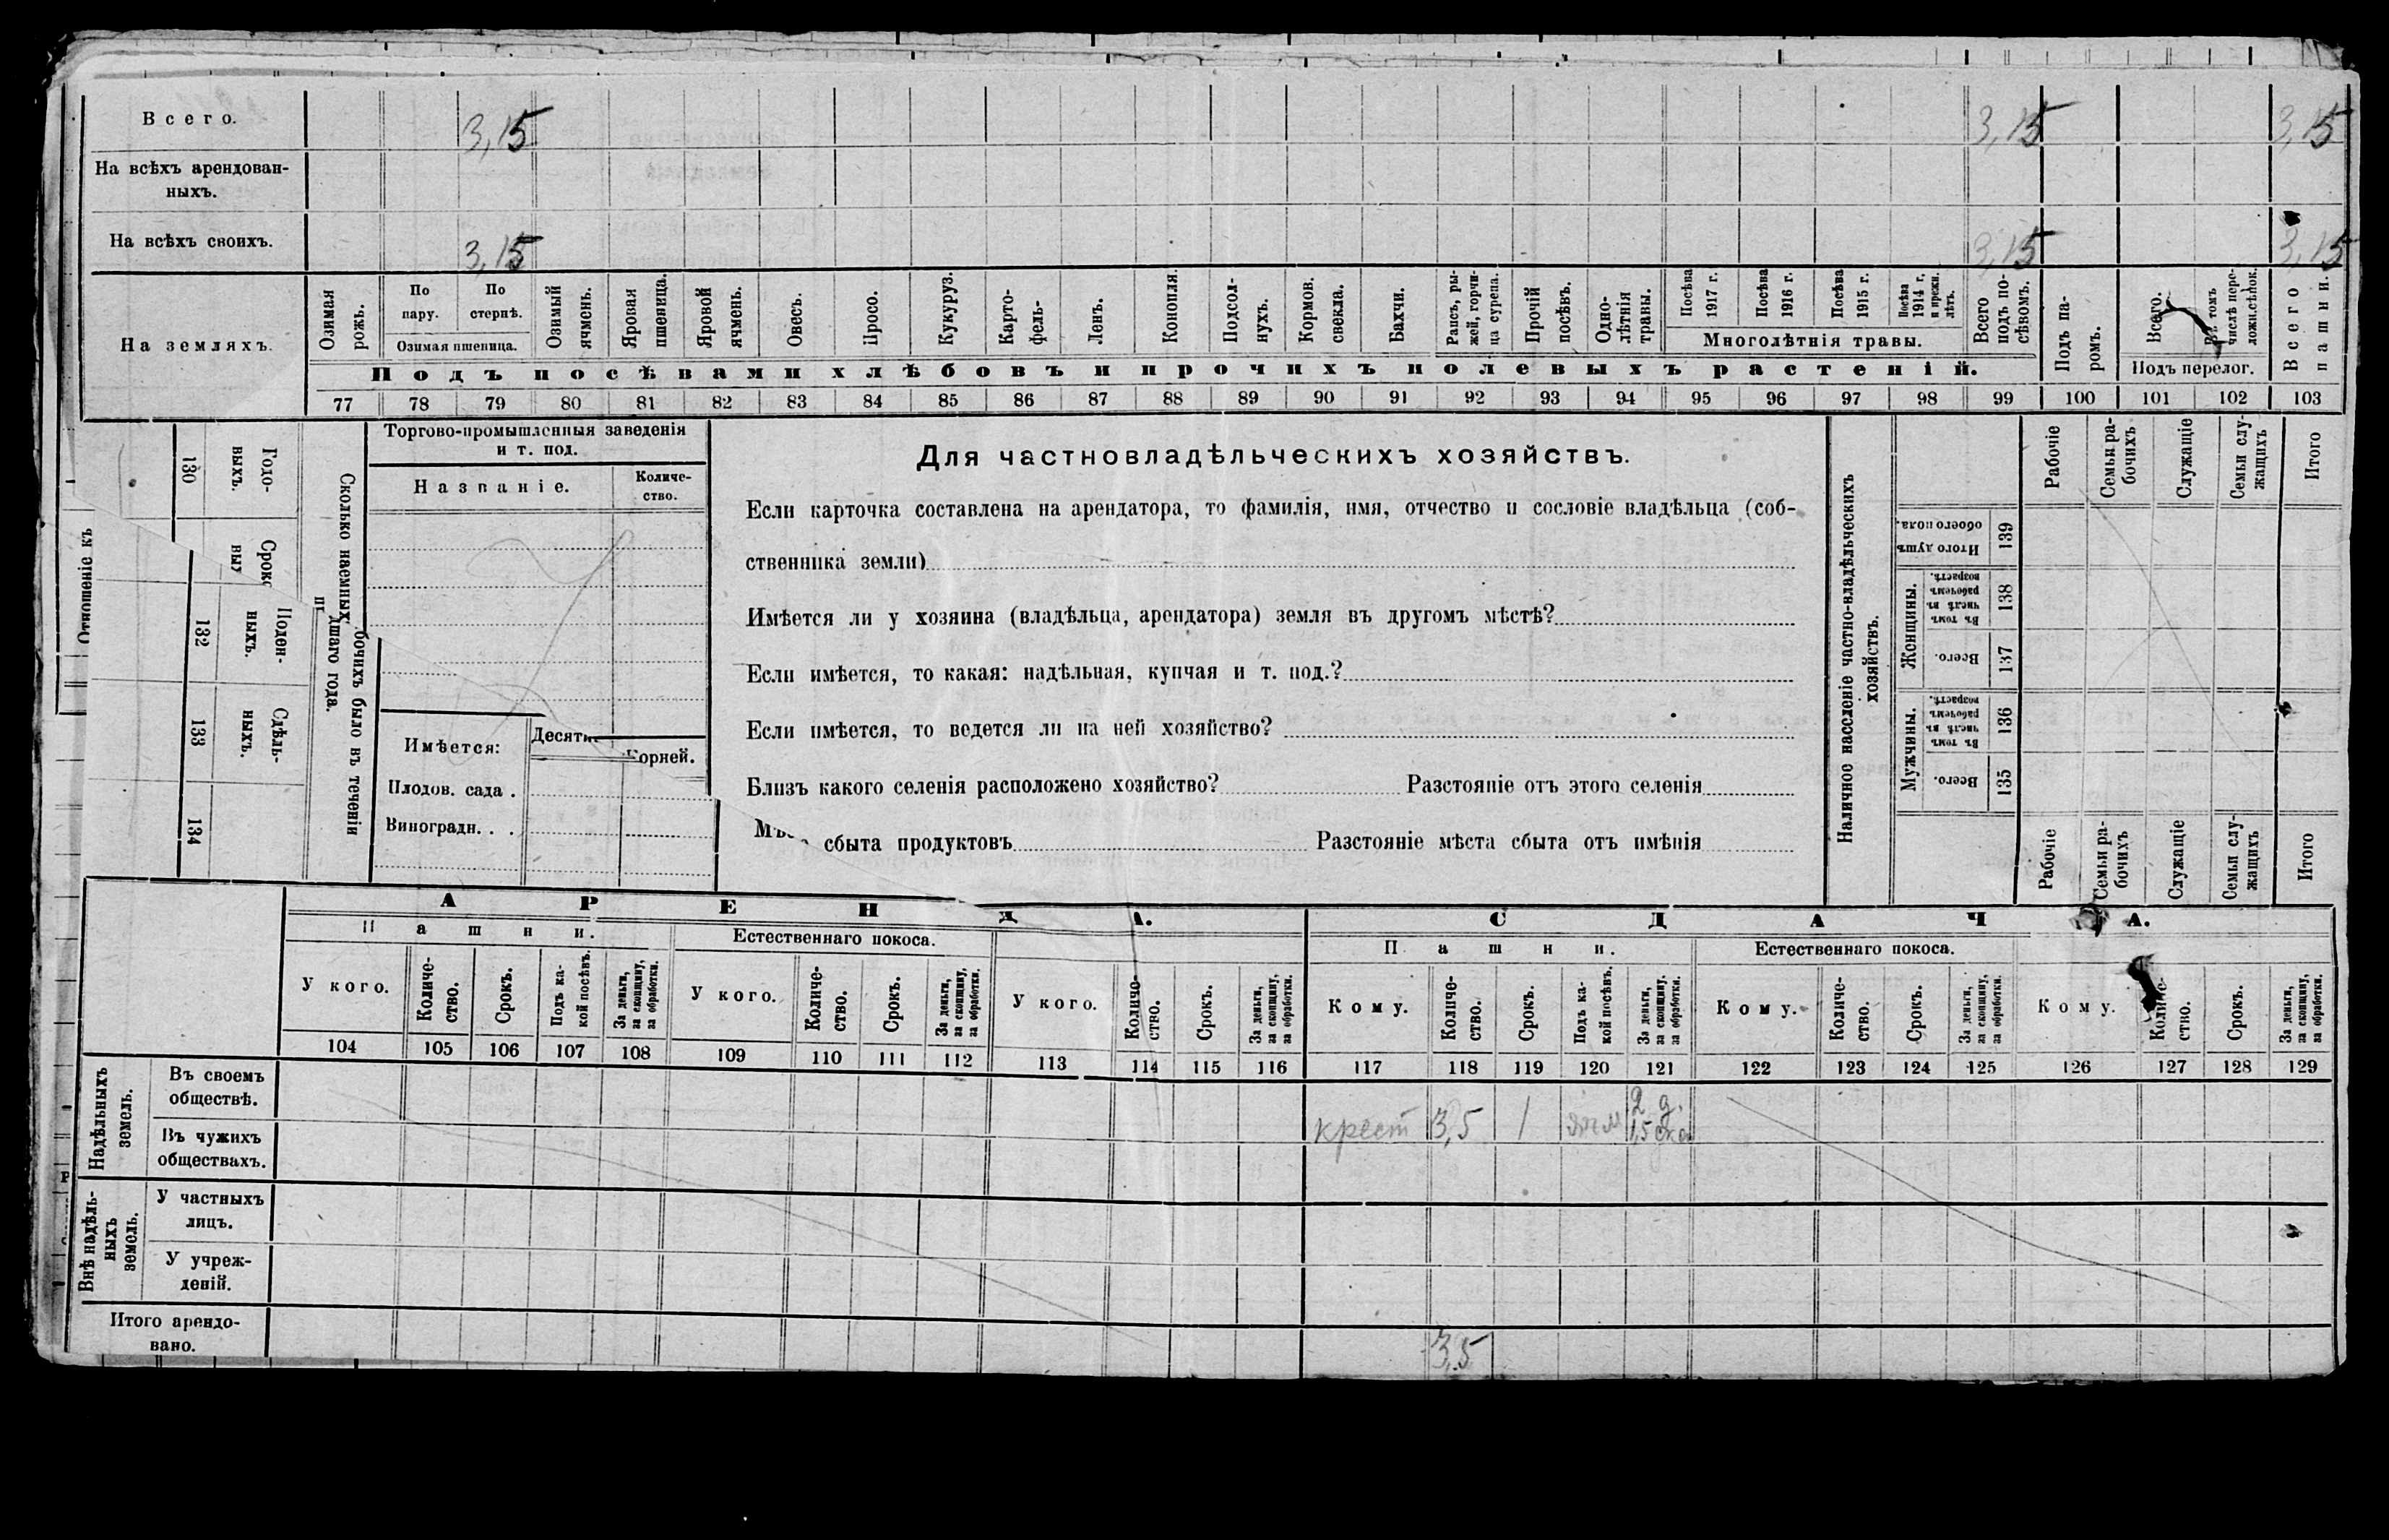 Всего. 3,15 3,15 3,15
На всѣхъ арендован-
ныхъ.
На всѣхъ своихъ. 3,15 3,15 3,15
На земляхъ.
Озимая рожь.
По пару.
По стернѣ.
Озимая пшеница.
Озимый ячмень.
Яровая пшеница.
Яровой ячмень.
Овесъ.
Просо.
Кукуруз.
Карто-
фель-
Ленъ.
Конопля.
Подсол-
нухъ.
Кормов. свекла.
Бахчи.
Рапсъ, ры-
жей, горчи-
ца сурепа.
Прочій посѣвъ.
Одно-
лѣтнія травы.
Посѣва 1917 г.
Посѣва 1916 г.
Посѣва 1915 г.
Посѣва 1914 г. и прежн. лѣтъ.
Многолѣтнія травы.
Всего подъ по-
сѣвомъ.
Подъ па-
ромъ.
Всего.
Въ томъ числѣ пере-
ложн.сѣнок.
Подъ перелог.
Всего пашни.
Подъ посѣвами хлѣбовъ и прочихъ полевыхъ растеній.
77 78 79 80 81 82 83 84 85 86 87 88 89 90 91 92 93 94 95 96 97 98 99 100 101 102 103
Отношеніе къ
130 Годо-
выхъ.
Срок
ны
132 Поден-
ныхъ.
133 Сдѣль-
ныхъ.
134
Сколько наемныхъ
бочихъ было въ теченіи
дшаго года.
Торгово-промышленныя заведенія
и т. под.
Названіе. Количе-
ство.
Имѣется: Десяти
Корней.
Плодов. сада .
Виноградн. . .
Для частновладѣльческихъ хозяйствъ.
Если карточка составлена на арендатора, то фамилія, имя, отчество и сословіе владѣльца (соб-
ственника земли)
Имѣется ли у хозяина (владѣльца, арендатора) земля въ другомъ мѣстѣ?
Если имѣется, то какая: надѣльная, купчая и т. под.?
Если имѣется, то ведется ли на ней хозяйство?
Близъ какого селенія расположено хозяйство? Разстояніе отъ этого селенія
сбыта продуктовъ Разстояніе мѣста сбыта отъ имѣнія
Наличное населеніе частно-владѣльческихъ
хозяйствъ.
Рабочіе
Семьи ра-
бочихъ
Служащіе
Семьи слу-
жащихъ
Итого
Итого душъ обоего пола. 139
Женщины.
Въ томъ числѣ въ рабочемъ возрастѣ. 138
Всего. 137
Мужчины.
Въ томъ числѣ въ рабочемъ возрастѣ. 136
Всего. 135
Рабочіе
Семьи ра-
бочихъ
Служащіе
Семьи слу-
жащихъ
Итого
АРЕНДА. СДАЧА.
Пашни. Естественнаго покоса. Пашни. Естественнаго покоса.
У кого. Количе-
ство. Срокъ. Подъ ка-
кой посѣвъ. За деньги, за скопщину, за обработки.
У кого. Количе-
ство. Срокъ. За деньги, за скопщину, за обработки.
У кого. Количе-
ство. Срокъ. За деньги, за скопщину, за обработки.
Кому. Количе-
ство. Срокъ. Подъ ка-
кой посѣвъ. За деньги, за скопщину, за обработки.
Кому. Количе-
ство. Срокъ. За деньги, за скопщину, за обработки.
Кому. Количе-
ство. Срокъ. За деньги, за скопщину, за обработки.
104 105 106 107 108 109 110 111 112 113 114 115 116 117 118 119 120 121 122 123 124 125 126 127 128 129
Надѣльныхъ земель.
Въ своемъ
обществѣ.
крест 3,5 1 ячм 2 д.
1,5
Въ чужихъ
обществахъ.
Внѣ надѣль-
ныхъ земель.
У частныхъ
лицъ.
У учреж-
деній.
Итого арендо-
вано.
3,5